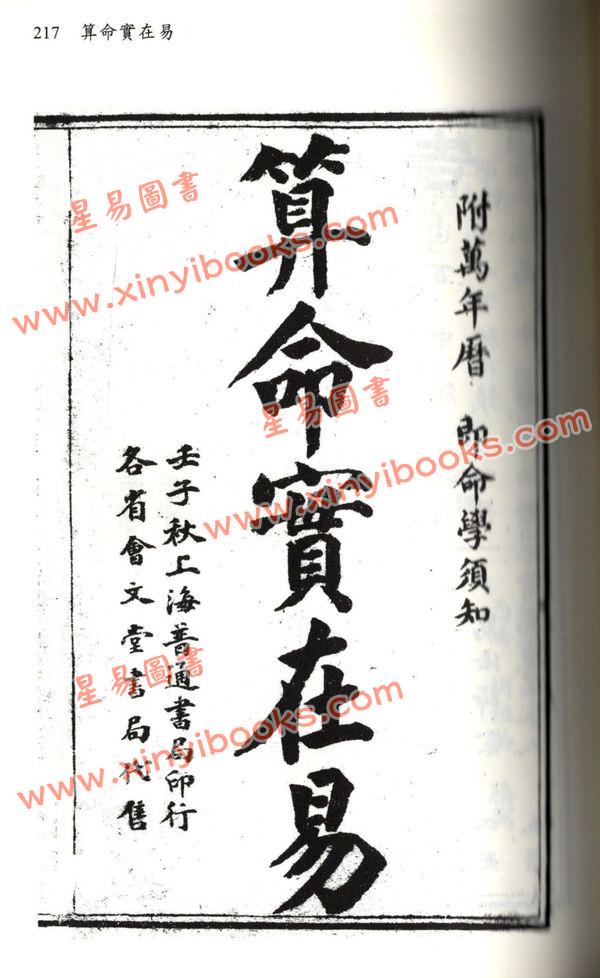 217 算命實在易
附萬年曆 即命學須知
算命實在易
壬子秋上海普通書局印行
各省會文堂書局代售
星易圖書
www.xinyibooks.com
星易圖書
www.xinyibooks.com
星易圖書
www.xinyibooks.com